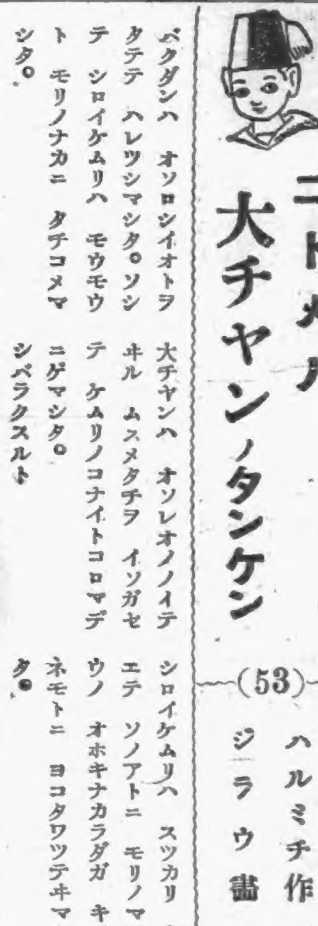 大チャンノタンケン
(53)
ハルミチ作
ジラウ畫
バクダンハ オソロシイオトヲ
タテテ ハレツシマシタ。ソシ
テ シロイケムリハ モウモウ
ト モリノナカニ タチコメマ
シタ。
大チャンハ オソレオノノイテ
ヰル ムスメタチヲ イソガセ
テ ケムリノコナイトコロマデ
ニゲマシタ。
シバラクスルト
シロイケムリハ スツカリ
エテ ソノアトニ モリノマ
ウノ オホキナカラダガ キ
ネモトニ ヨコタワツテヰマ
タ。